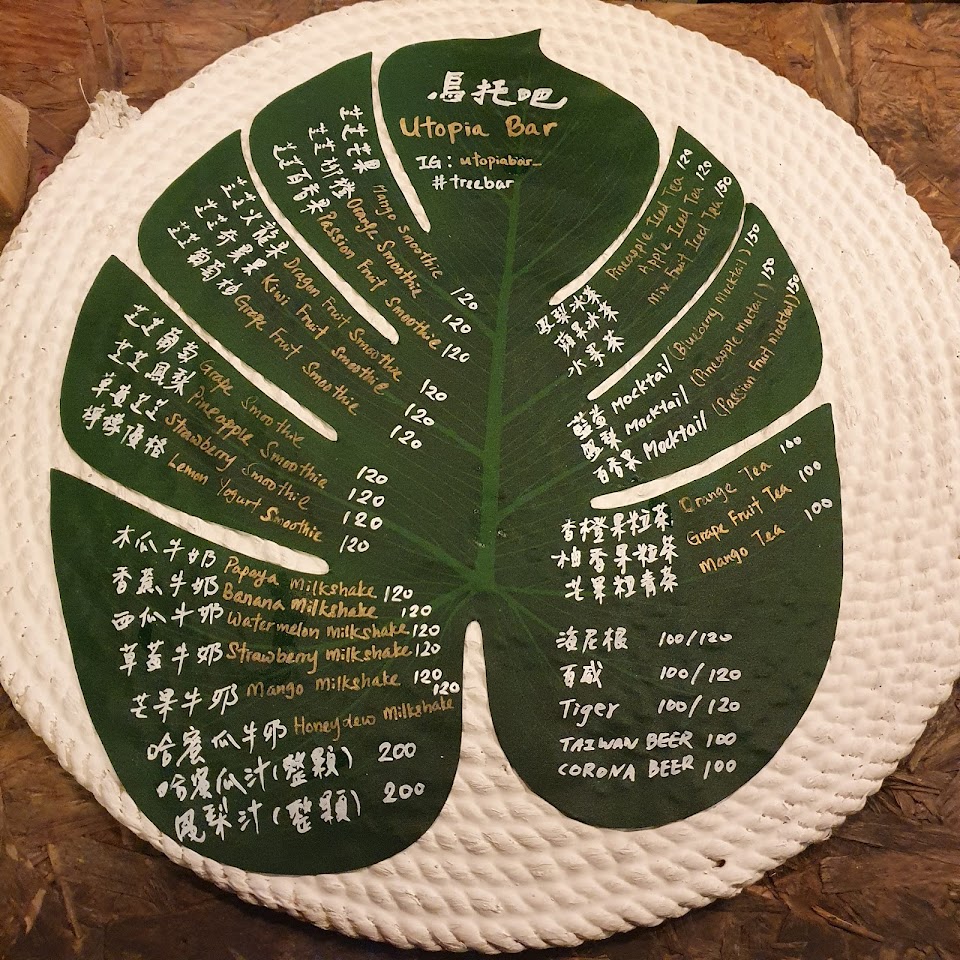 烏托吧
Utopia Bar
IG: utopiabar_
#treebar
芝芝芒果 Mango Smoothie 120
芝芝柳橙 Orange Smoothie 120
芝芝百香果 Passion Fruit Smoothie 120
芝芝火龍果 Dragon Fruit Smoothie 120
芝芝奇異果 Kiwi Fruit Smoothie 120
芝芝葡萄柚 Grape Fruit Smoothie 120
芝芝葡萄 Grape Smoothie 120
芝芝鳳梨 Pineapple Smoothie 120
草莓芝芝 Strawberry Smoothie 120
檸檬優格 Lemon Yogurt Smoothie 120
木瓜牛奶 Papaya Milkshake 120
香蕉牛奶 Banana Milkshake 120
西瓜牛奶 Watermelon Milkshake 120
草莓牛奶 Strawberry Milkshake 120
芒果牛奶 Mango Milkshake 120
哈蜜瓜牛奶 Honeydew Milkshake 120
哈蜜瓜汁(整顆) 200
鳳梨汁(整顆) 200
鳳梨冰茶 Pineapple Iced Tea 120
蘋果冰茶 Apple Iced Tea 120
水果茶 Mix Fruit Iced Tea 150
藍莓 Mocktail (Blueberry Mocktail) 150
鳳梨 Mocktail (Pineapple Mocktail) 150
百香果 Mocktail (Passion Fruit Mocktail) 150
香橙果粒茶 Orange Tea 100
柚香果粒茶 Grape Fruit Tea 100
芒果粒青茶 Mango Tea 100
海尼根 100/120
百威 100/120
Tiger 100/120
TAIWAN BEER 100
CORONA BEER 100